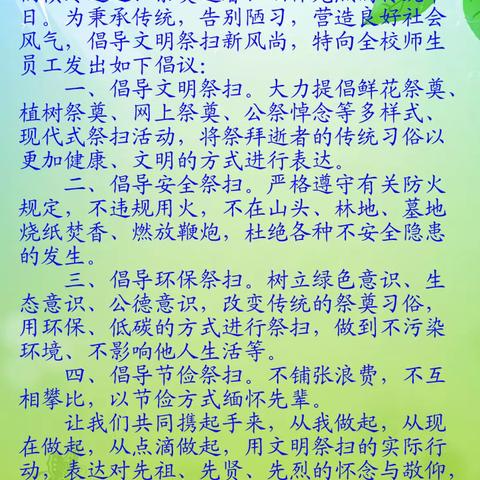 日。为秉承传统，告别陋习，营造良好社会
风气，倡导文明祭扫新风尚，特向全校师生
员工发出如下倡议：
一、倡导文明祭扫。大力提倡鲜花祭奠、
植树祭奠、网上祭奠、公祭悼念等多样式、
现代式祭扫活动，将祭拜逝者的传统习俗以
更加健康、文明的方式进行表达。
二、倡导安全祭扫。严格遵守有关防火
规定，不违规用火，不在山头、林地、墓地
烧纸焚香、燃放鞭炮，杜绝各种不安全隐患
的发生。
三、倡导环保祭扫。树立绿色意识、生
态意识、公德意识，改变传统的祭奠习俗，
用环保、低碳的方式进行祭扫，做到不污染
环境、不影响他人生活等。
四、倡导节俭祭扫。不铺张浪费，不互
相攀比，以节俭方式缅怀先辈。
让我们共同携起手来，从我做起，从现
在做起，从点滴做起，用文明祭扫的实际行
动，表达对先祖、先贤、先烈的怀念与敬仰，